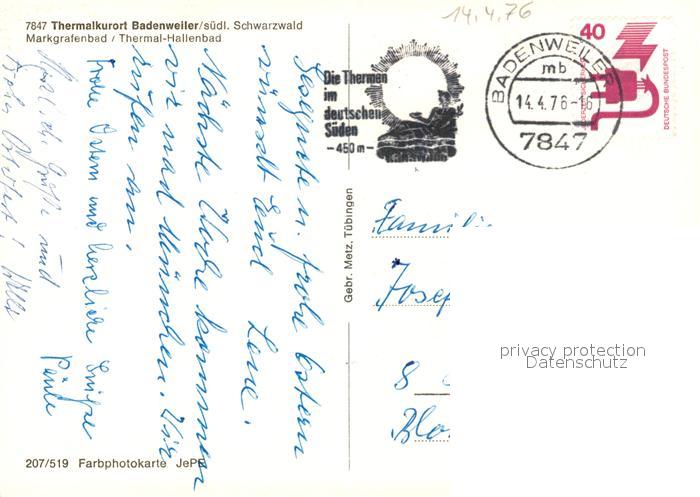 14.4.76
7847 Thermalkurort Badenweiler/südl. Schwarzwald
Markgrafenbad / Thermal-Hallenbad
Gesegnete u. frohe Ostern
wünscht Euch Lene.
Nächste Woche kommen
wir nach München. Wir
rufen an.
Frohe Ostern und herzliche Grüße
Paula
Herzliche Grüße und
frohes Osterfest!
Die Thermen
im
deutschen
Süden
-450 m-
BADENWEILER
mb
14.4.76-16
7847
40
DEUTSCHE BUNDESPOST
Gebr. Metz, Tübingen
Famili
Josep
8
Blo
privacy protection
Datenschutz
207/519 Farbphotokarte JePE